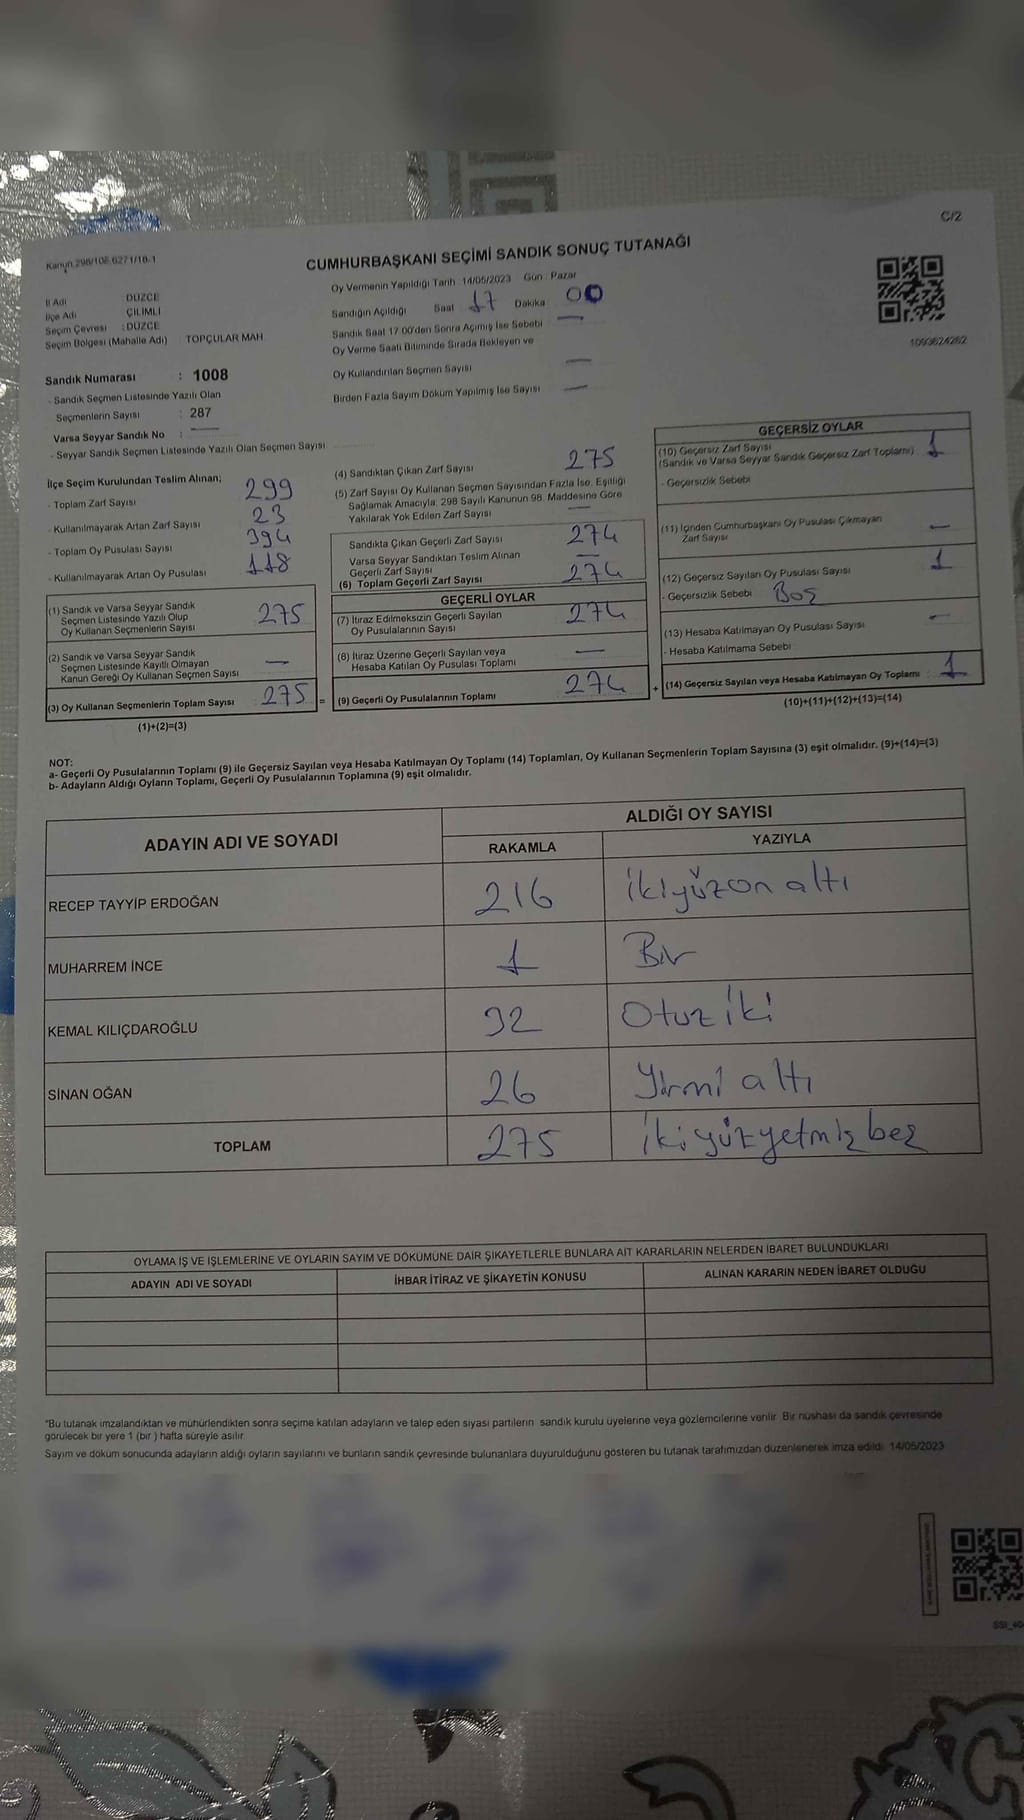 C/2
Kanun 298/108 6271/18-1
CUMHURBAŞKANI SEÇİMİ SANDIK SONUÇ TUTANAĞI
Oy Vermenin Yapıldığı Tarih 14/05/2023 Gün : Pazar
İl Adı DÜZCE
İlçe Adı ÇİLİMLİ
Seçim Çevresi : DÜZCE
Seçim Bölgesi (Mahalle Adı) : TOPÇULAR MAH
Sandığın Açıldığı Saat 17 Dakika 00
Sandık Saat 17.00'den Sonra Açımış İse Sebebi —
Oy Verme Saati Bitiminde Sırada Bekleyen ve
Oy Kullandırılan Seçmen Sayısı —
Birden Fazla Sayım Döküm Yapılmış İse Sayısı —
1093624262
Sandık Numarası : 1008
- Sandık Seçmen Listesinde Yazılı Olan
Seçmenlerin Sayısı : 287
Varsa Seyyar Sandık No : —
- Seyyar Sandık Seçmen Listesinde Yazılı Olan Seçmen Sayısı
İlçe Seçim Kurulundan Teslim Alınan;
- Toplam Zarf Sayısı 299
- Kullanılmayarak Artan Zarf Sayısı 23
- Toplam Oy Pusulası Sayısı 394
- Kullanılmayarak Artan Oy Pusulası 118
(1) Sandık ve Varsa Seyyar Sandık
Seçmen Listesinde Yazılı Olup
Oy Kullanan Seçmenlerin Sayısı 275
(2) Sandık ve Varsa Seyyar Sandık
Seçmen Listesinde Kayıtlı Olmayan
Kanun Gereği Oy Kullanan Seçmen Sayısı —
(3) Oy Kullanan Seçmenlerin Toplam Sayısı 275 =
(1)+(2)=(3)
(4) Sandıktan Çıkan Zarf Sayısı 275
(5) Zarf Sayısı Oy Kullanan Seçmen Sayısından Fazla İse, Eşitliği
Sağlamak Amacıyla; 298 Sayılı Kanunun 98. Maddesine Göre
Yakılarak Yok Edilen Zarf Sayısı —
Sandıkta Çıkan Geçerli Zarf Sayısı 274
Varsa Seyyar Sandıktan Teslim Alınan
Geçerli Zarf Sayısı —
(6) Toplam Geçerli Zarf Sayısı 274
GEÇERLİ OYLAR
(7) İtiraz Edilmeksizin Geçerli Sayılan
Oy Pusulalarının Sayısı 274
(8) İtiraz Üzerine Geçerli Sayılan veya
Hesaba Katılan Oy Pusulası Toplamı —
(9) Geçerli Oy Pusulalarının Toplamı 274 +
GEÇERSİZ OYLAR
(10) Geçersiz Zarf Sayısı
(Sandık ve Varsa Seyyar Sandık Geçersiz Zarf Toplamı) 1
- Geçersizlik Sebebi
(11) İçinden Cumhurbaşkanı Oy Pusulası Çıkmayan
Zarf Sayısı —
(12) Geçersiz Sayılan Oy Pusulası Sayısı 1
- Geçersizlik Sebebi Boş
(13) Hesaba Katılmayan Oy Pusulası Sayısı —
- Hesaba Katılmama Sebebi
(14) Geçersiz Sayılan veya Hesaba Katılmayan Oy Toplamı : 1
(10)+(11)+(12)+(13)=(14)
NOT:
a- Geçerli Oy Pusulalarının Toplamı (9) ile Geçersiz Sayılan veya Hesaba Katılmayan Oy Toplamı (14) Toplamları, Oy Kullanan Seçmenlerin Toplam Sayısına (3) eşit olmalıdır. (9)+(14)=(3)
b- Adayların Aldığı Oyların Toplamı, Geçerli Oy Pusulalarının Toplamına (9) eşit olmalıdır.
ADAYIN ADI VE SOYADI
ALDIĞI OY SAYISI
RAKAMLA YAZIYLA
RECEP TAYYİP ERDOĞAN 216 İkiyüzon altı
MUHARREM İNCE 1 Bir
KEMAL KILIÇDAROĞLU 32 Otuz iki
SİNAN OĞAN 26 Yirmi altı
TOPLAM 275 ikiyüzyetmiş beş
OYLAMA İŞ VE İŞLEMLERİNE VE OYLARIN SAYIM VE DÖKÜMÜNE DAİR ŞİKAYETLERLE BUNLARA AİT KARARLARIN NELERDEN İBARET BULUNDUKLARI
ADAYIN ADI VE SOYADI İHBAR İTİRAZ VE ŞİKAYETİN KONUSU ALINAN KARARIN NEDEN İBARET OLDUĞU
"Bu tutanak imzalandıktan ve mühürlendikten sonra seçime katılan adayların ve talep eden siyasi partilerin sandık kurulu üyelerine veya gözlemcilerine verilir. Bir nüshası da sandık çevresinde
görülecek bir yere 1 (bir) hafta süreyle asılır.
Sayım ve döküm sonucunda adayların aldığı oyların sayılarını ve bunların sandık çevresinde bulunanlara duyurulduğunu gösteren bu tutanak tarafımızdan düzenlenerek imza edildi. 14/05/2023